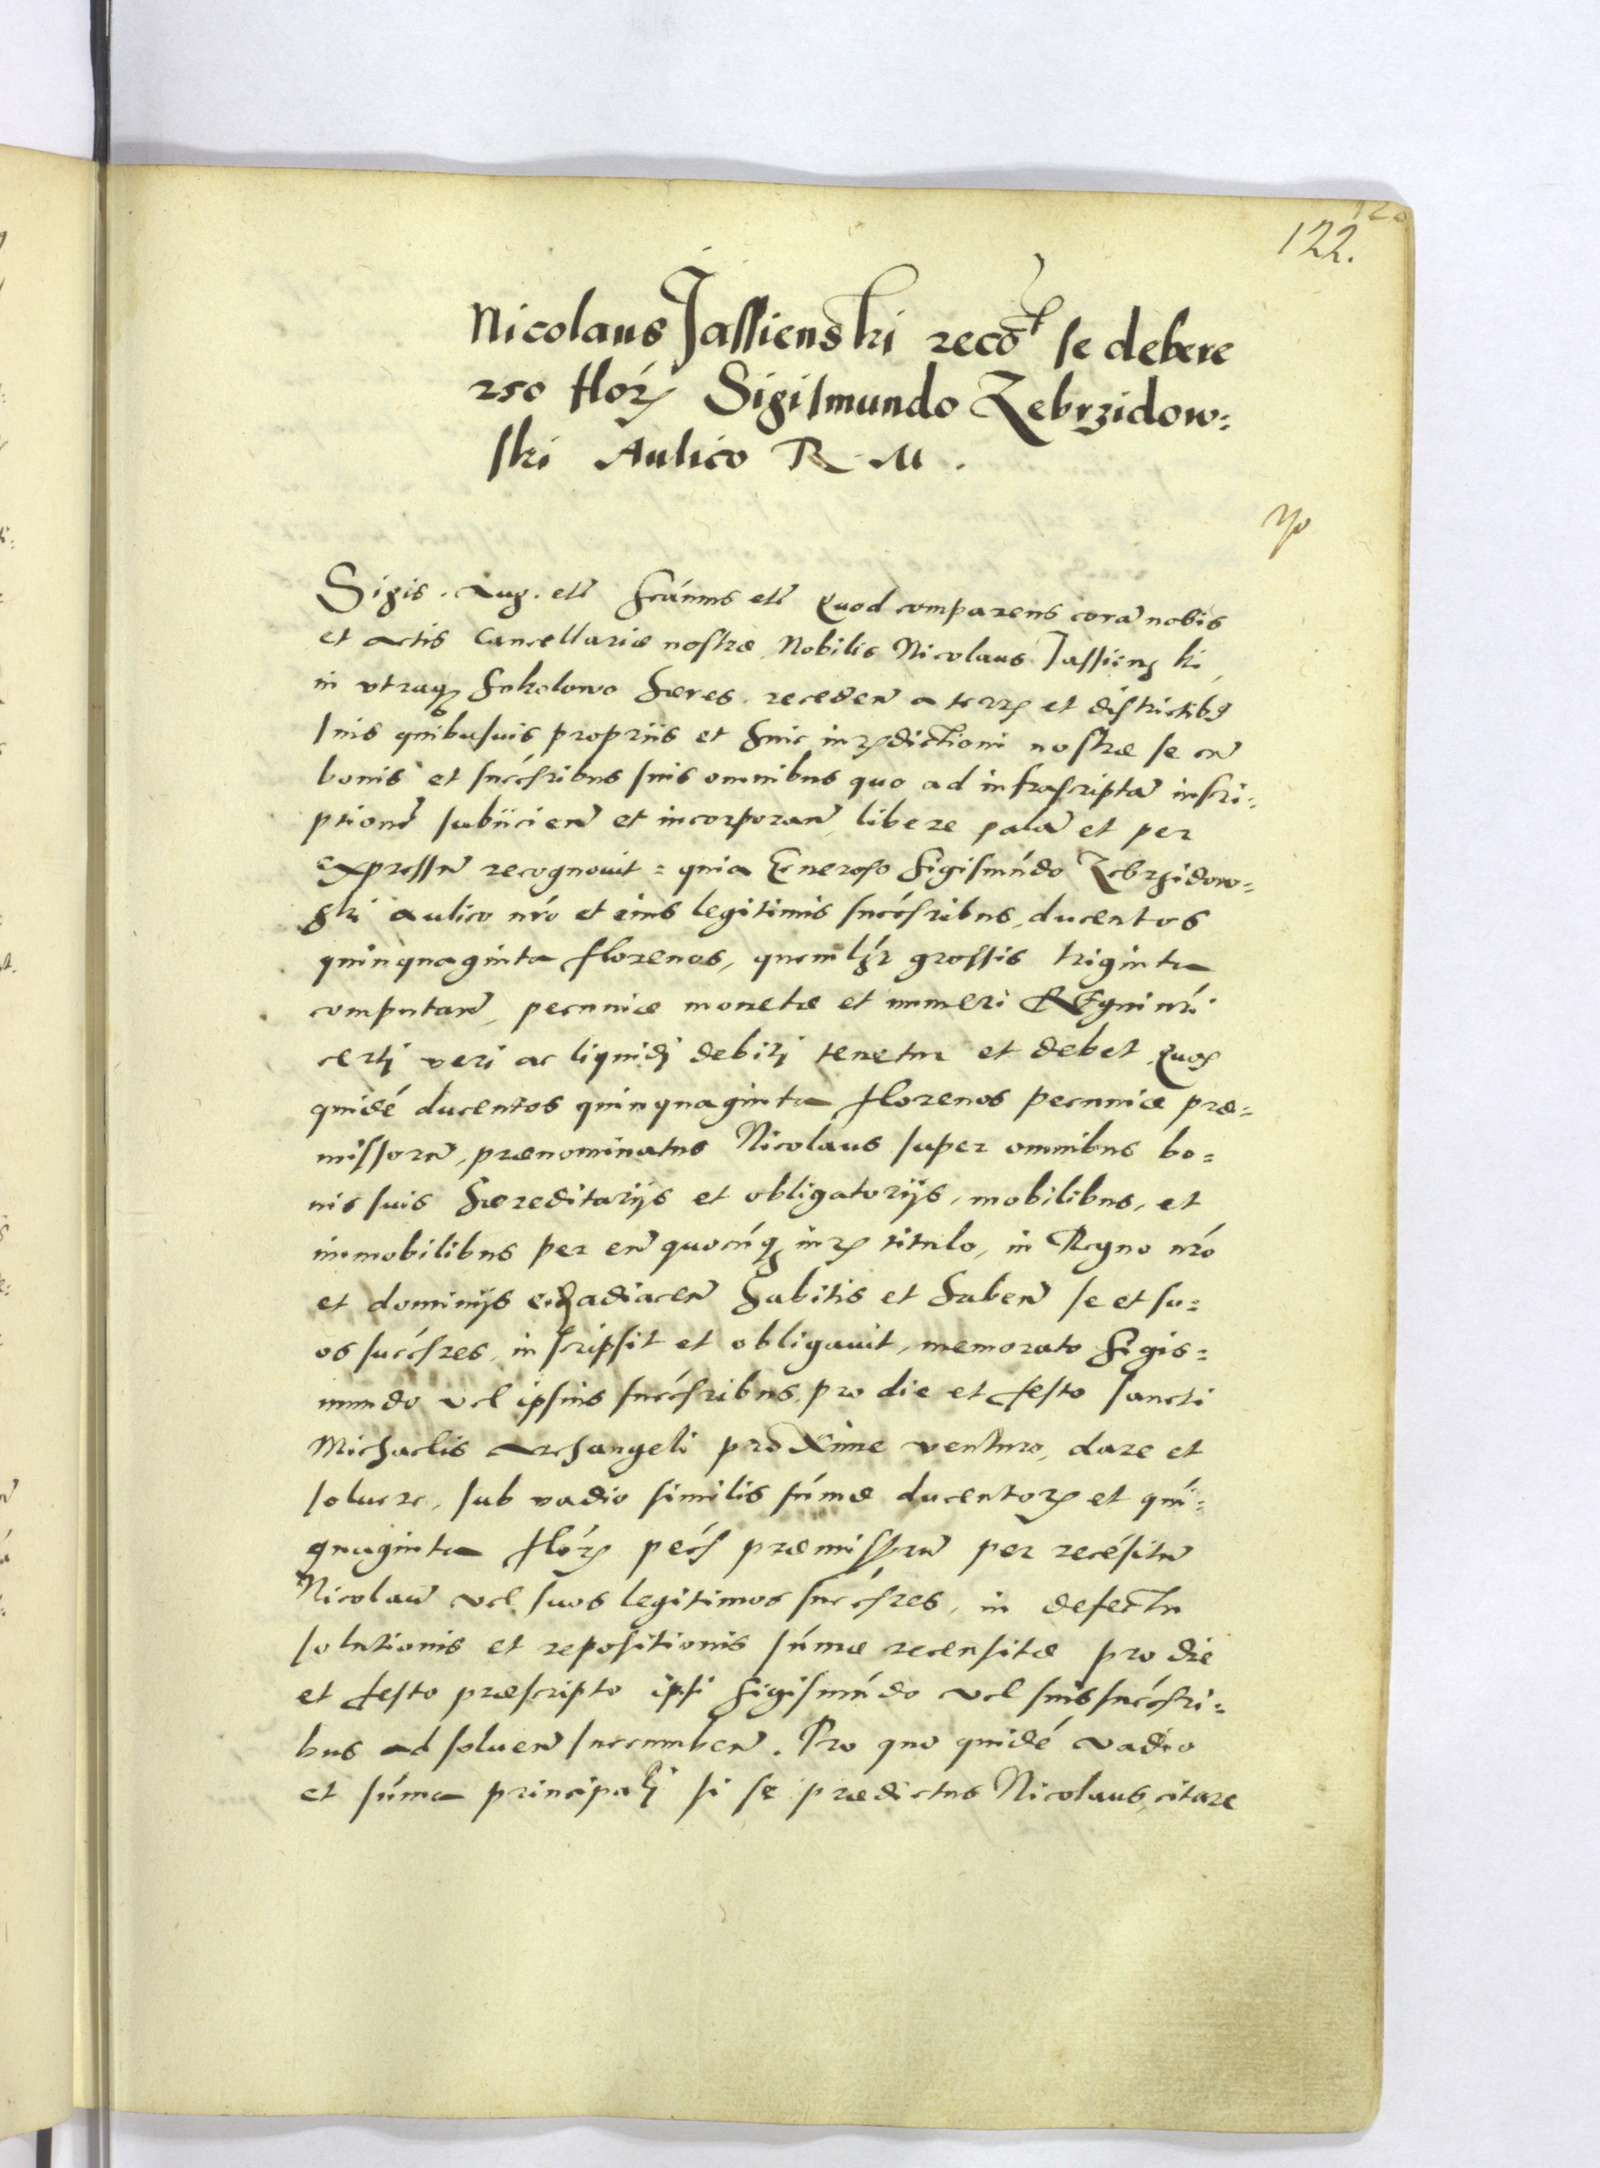 122.
Nicolaus Jassienski reco͠t se debere
250 flór Sigismundo Zebrzidow:
ski Aulico R. M.
Sigis. Aug. etc̃ scãimus etc̃ Quod comparens corã nobis
et Actis Cancellariæ nostræ Nobilis Nicolaus Jassienski,
in utraq; Sokolowo hæres. receden̄ a terris et districtib9
suis quibusuis propriis et huic inr̃dictioni nostræ se cũ
bonis et succ̃sribus suis omnibus quo ad infrascriptã inscri:
ptionẽ subiicien̄ et incorporan̄, libere palã et per
expressũ recognouit: quia Generoso Sigismũdo Zebrzidow:
ski aulico nr̃o et eius legitimis succ̃sribus, ducentos
quinquaginta florenos, quemlib̃t grossis triginta
computan̄, pecuniæ monetæ et numeri Regni nr̃i
certi veri ac liquidi debiti tenetur et debet. Quos
quidẽ ducentos quinquaginta florenos pecuniæ præ:
missorũ, prænominatus Nicolaus super omnibus bo:
nis suis hæreditariis et obligatoriis, mobilibus, et
immobilibus per eũ quocũq; iur̃ titulo, in Regno nr̃o
et dominijs ei adiacen̄ habitis et haben̄ se et su:
os succ̃sres, inscripsit et obligauit, memorato Sigis:
mundo vel ipsius succ̃sribus, pro die et festo sancti
Michaelis Archangeli proxime venturo, dare et
soluere, sub vadio similis sũmæ ducentor̃ et quĩ:
quaginta flór pec̃ præmissorũ per recẽsitũ
Nicolaũ vel suos legitimos succ̃sres, in defectu
solutionis et repositionis sũmæ recensitæ pro die
et festo præscripto ipsi Sigismũdo vel suis succ̃sri:
bus ad soluen̄ succumben̄. Pro quo quidẽ vadio
et sũma principali si se prædictus Nicolaus, citare